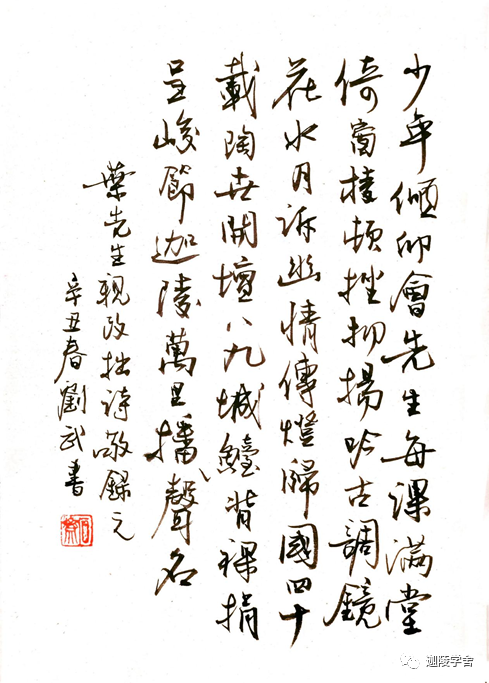 少年傾仰會先生每課滿堂
倚窗棱頓挫抑揚吟古調鏡
花水月訴幽情傳燈歸國四十
載陶世開壇八九城背裸捐
呈峻節迦陵萬里播聲名
葉先生親改拙詩敬錄之
辛丑春劉武書
迦陵学舍